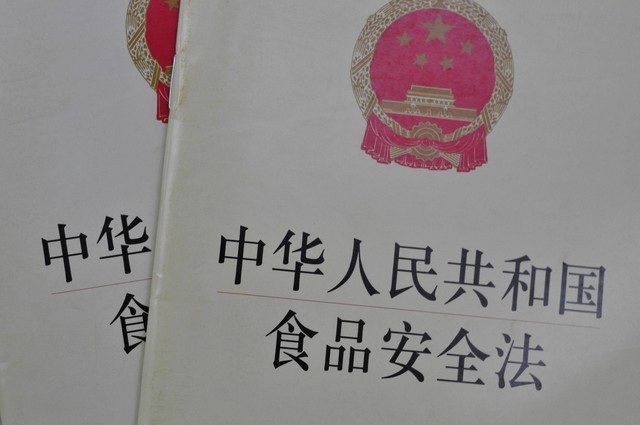 中华人民共和国
食品安全法
中华
食